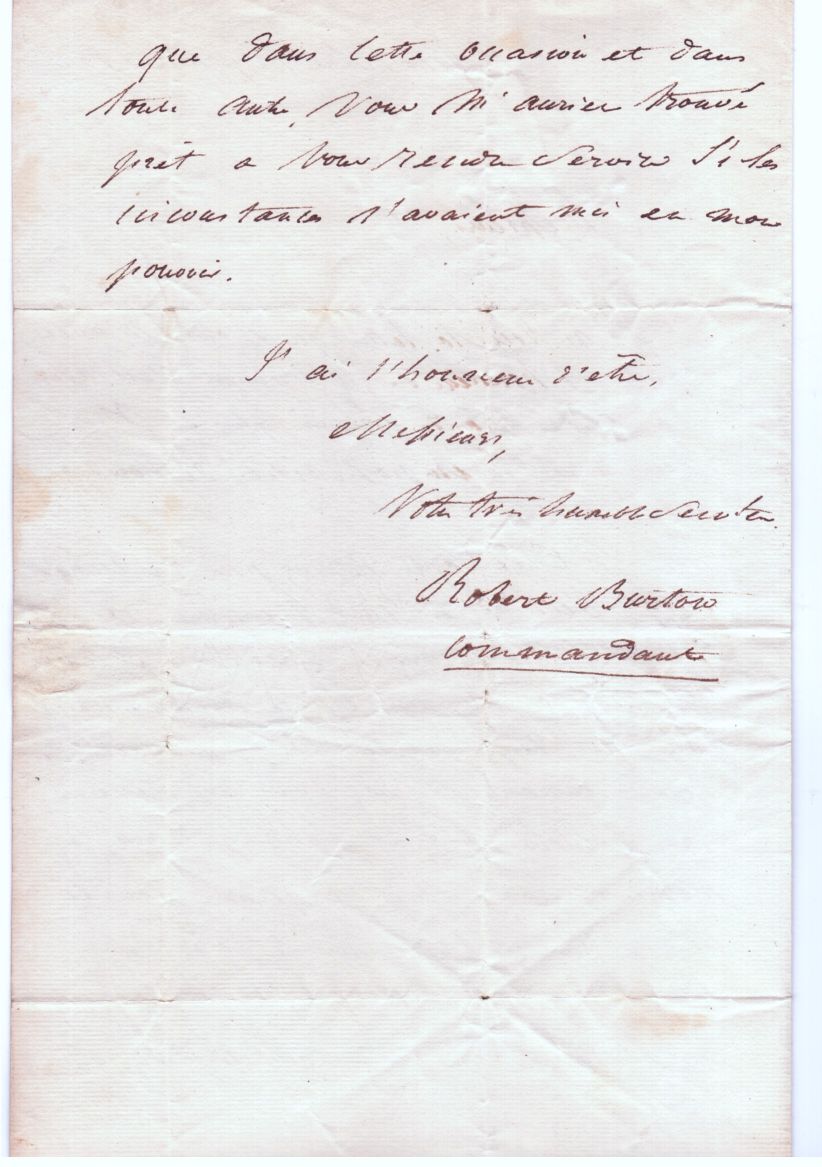 que dans cette occasion et dans
toute autre, vous m'auriez trouvé
prêt a vous rendre service si les
circonstances l'avaient mis en mon
pouvoir.
J'ai l'honneur d'etre,
Messieurs,
Votre très humble Serviteur.
Robert Burton
Commandant